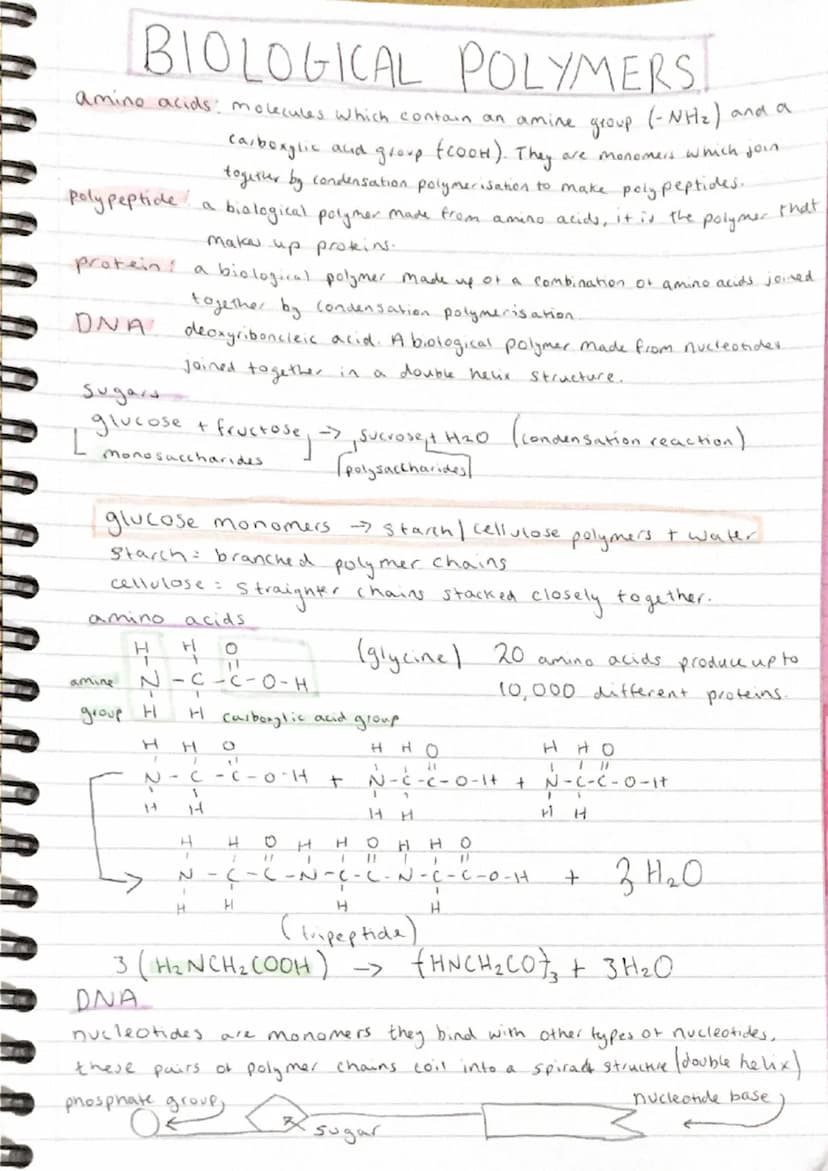 BIOLOGICAL POLYMERS
amino acids: molecules which contain an amine group (-NH2) and a
carboxylic acid group (COOH). They are monomers which join
together by condensation polymerisation to make polypeptides.
polypeptide: a biological polymer made from amino acids, it is the polymer that
makes up proteins.
protein: a biological polymer made up of a combination of amino acids joined
together by condensation polymerisation.
DNA deoxyriboncleic acid. A biological polymer made from nucleotides
joined together in a double helix structure.
sugars
glucose + fructose → sucrose + H2O (condensation reaction)
monosaccharides polysaccharides
glucose monomers → starch/cellulose polymers + water
starch = branched polymer chains
cellulose = straighter chains stacked closely together.
amino acids
H H O (glycine) 20 amino acids produce up to
amine N - C - C - O - H 10,000 different proteins.
group H H carboxylic acid group
H H O H H O H H O
N - C - C - O - H + N - C - C - O - H + N - C - C - O - H
H H H H H H
H H O H H O H H O
N - C - C - N - C - C - N - C - C - O - H + 3 H2O
H H H H
(tripeptide)
3 (H2NCH2COOH) → {HNCH2CO}3 + 3H2O
DNA
nucleotides are monomers they bind with other types of nucleotides,
these pairs of polymer chains coil into a spiral structure (double helix)
phosphate group nucleotide base
sugar